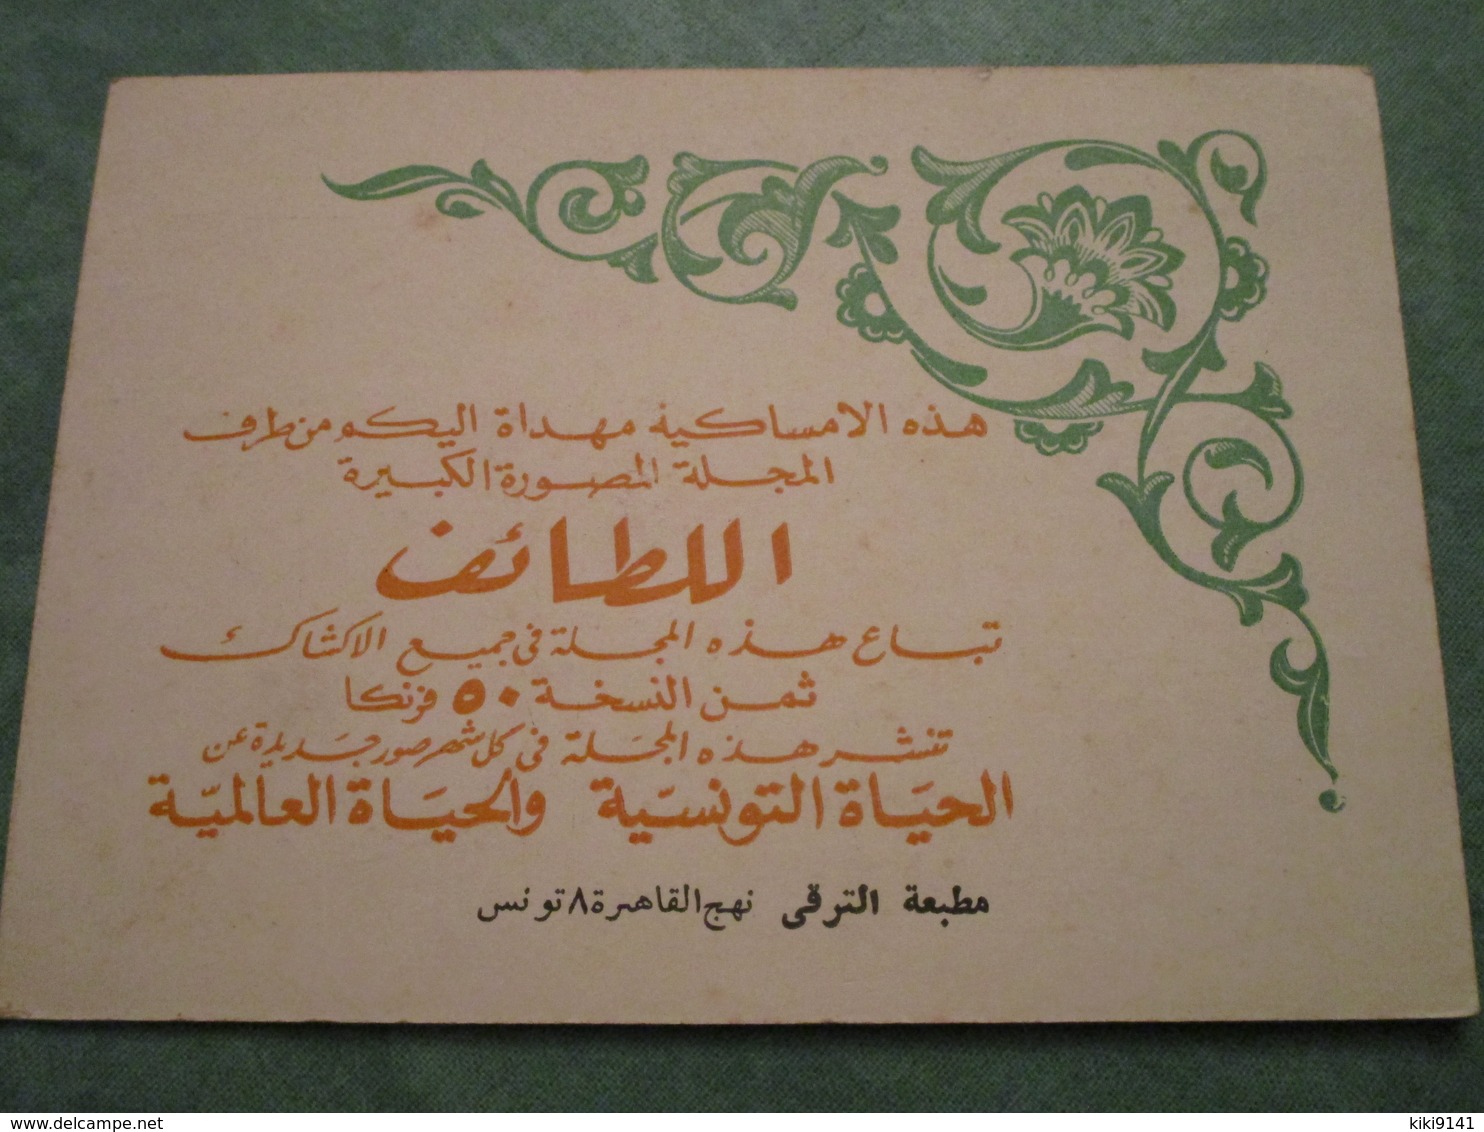 هذه الامساكية مهداة اليكم من طرف
المجلة المصورة الكبيرة
اللطائف
تباع هذه المجلة في جميع الاكشاك
ثمن النسخة ٥٠ فرنكا
تنشر هذه المجَلة في كل شهر صور جَديدة عن
الحيَاة التونسيّة والحيَاة العالميّة
مطبعة الترقى نهج القاهرة ٨ تونس
www.delcampe.net
kiki9141